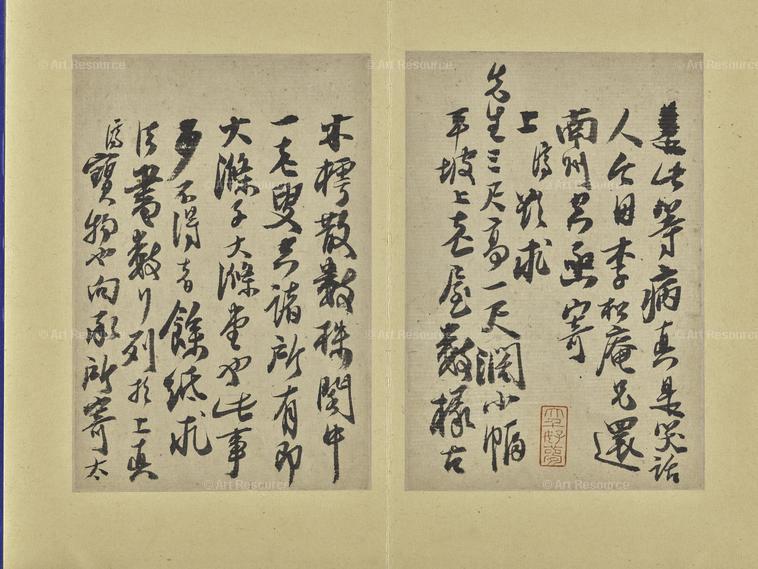 此等病真是笑話
人今日李松庵兄還
南州空函寄
上濟欲求
先生三尺高一尺闊小幅
平坡上老屋數椽古
木樗散數株閣中
一老叟空諸所有即
大滌子大滌堂也此事
少不得者餘紙求
法書數行列於上真
濟寶物也向承所寄太
© Art Resource